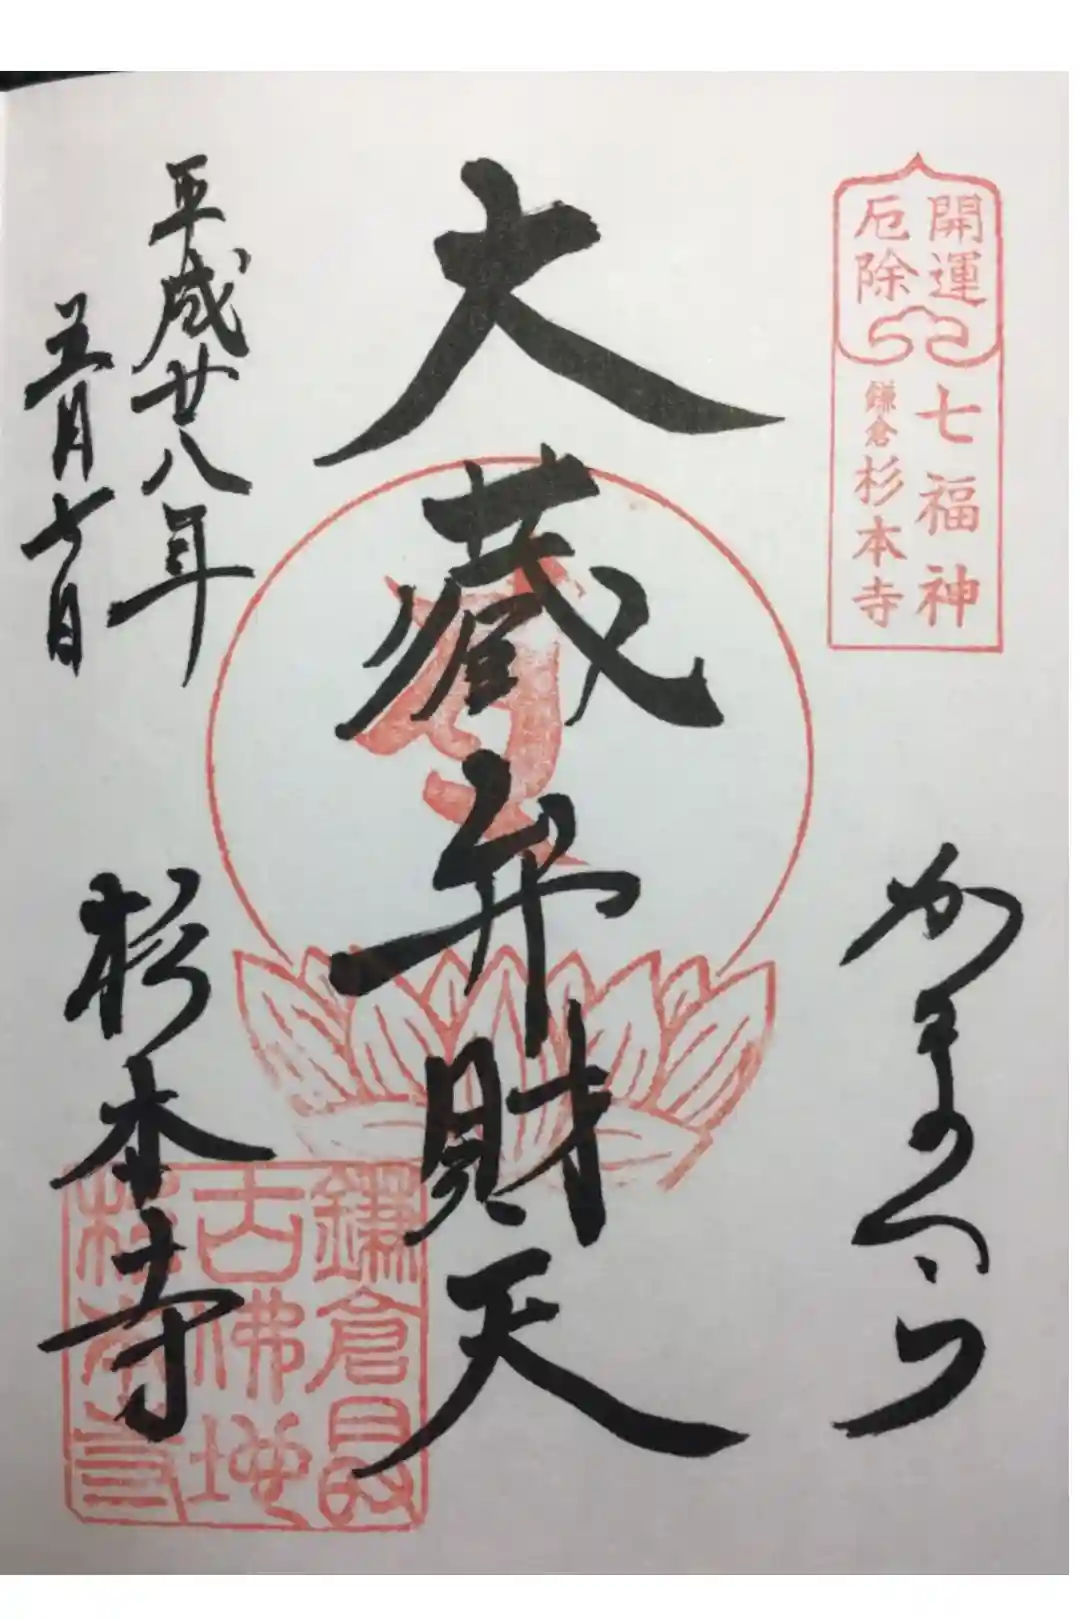 開運
厄除
七福神
鎌倉杉本寺
大藏弁財天
平成廿八年
月七日
杉本寺
鎌倉最
古佛地
杉本寺